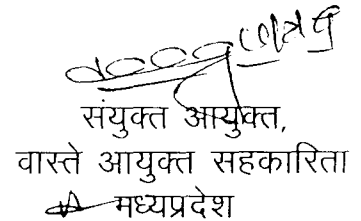 संयुक्त आयुक्त,
वास्ते आयुक्त सहकारिता
मध्यप्रदेश